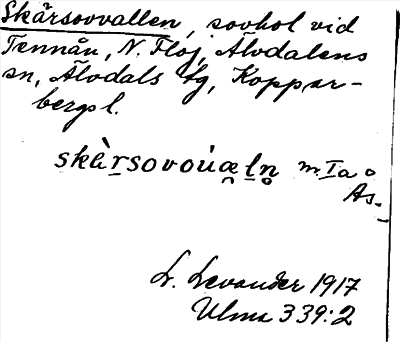 Skärsovvallen, sovhol vid
Tennån, N. Flöj, Älvdalens
sn, Älvdals tg, Koppar-
bergs l.
skὲr̠sovou̇æ̯l̠n̥ m. Ia
Ås.
L. Levander 1917
Ulma 339:2